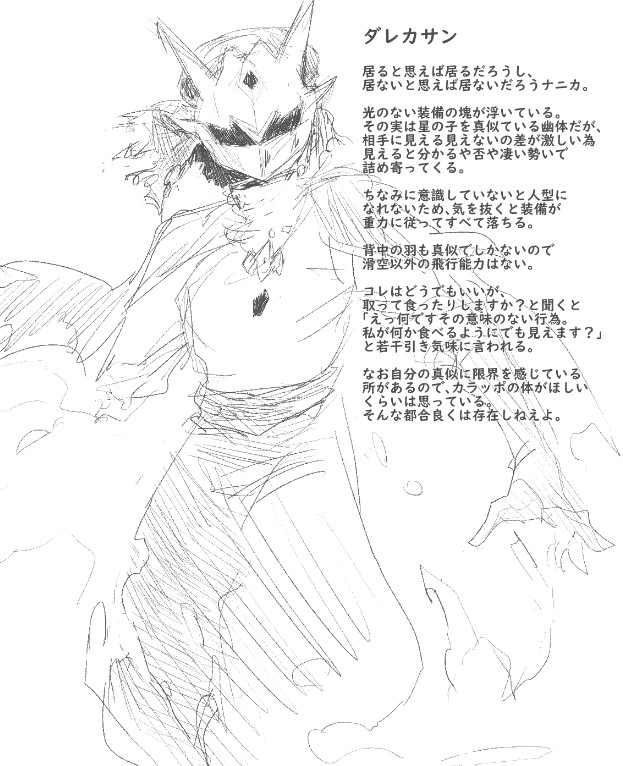 ダレカサン
居ると思えば居るだろうし、
居ないと思えば居ないだろうナニカ。
光のない装備の塊が浮いている。
その実は星の子を真似ている幽体だが、
相手に見える見えないの差が激しい為
見えると分かるや否や凄い勢いで
詰め寄ってくる。
ちなみに意識していないと人型に
なれないため、気を抜くと装備が
重力に従ってすべて落ちる。
背中の羽も真似でしかないので
滑空以外の飛行能力はない。
コレはどうでもいいが、
取って食ったりしますか？と聞くと
「えっ何ですその意味のない行為。
私が何か食べるようにでも見えます？」
と若干引き気味に言われる。
なお自分の真似に限界を感じている
所があるので、カラッポの体がほしい
くらいは思っている。
そんな都合良くは存在しねえよ。